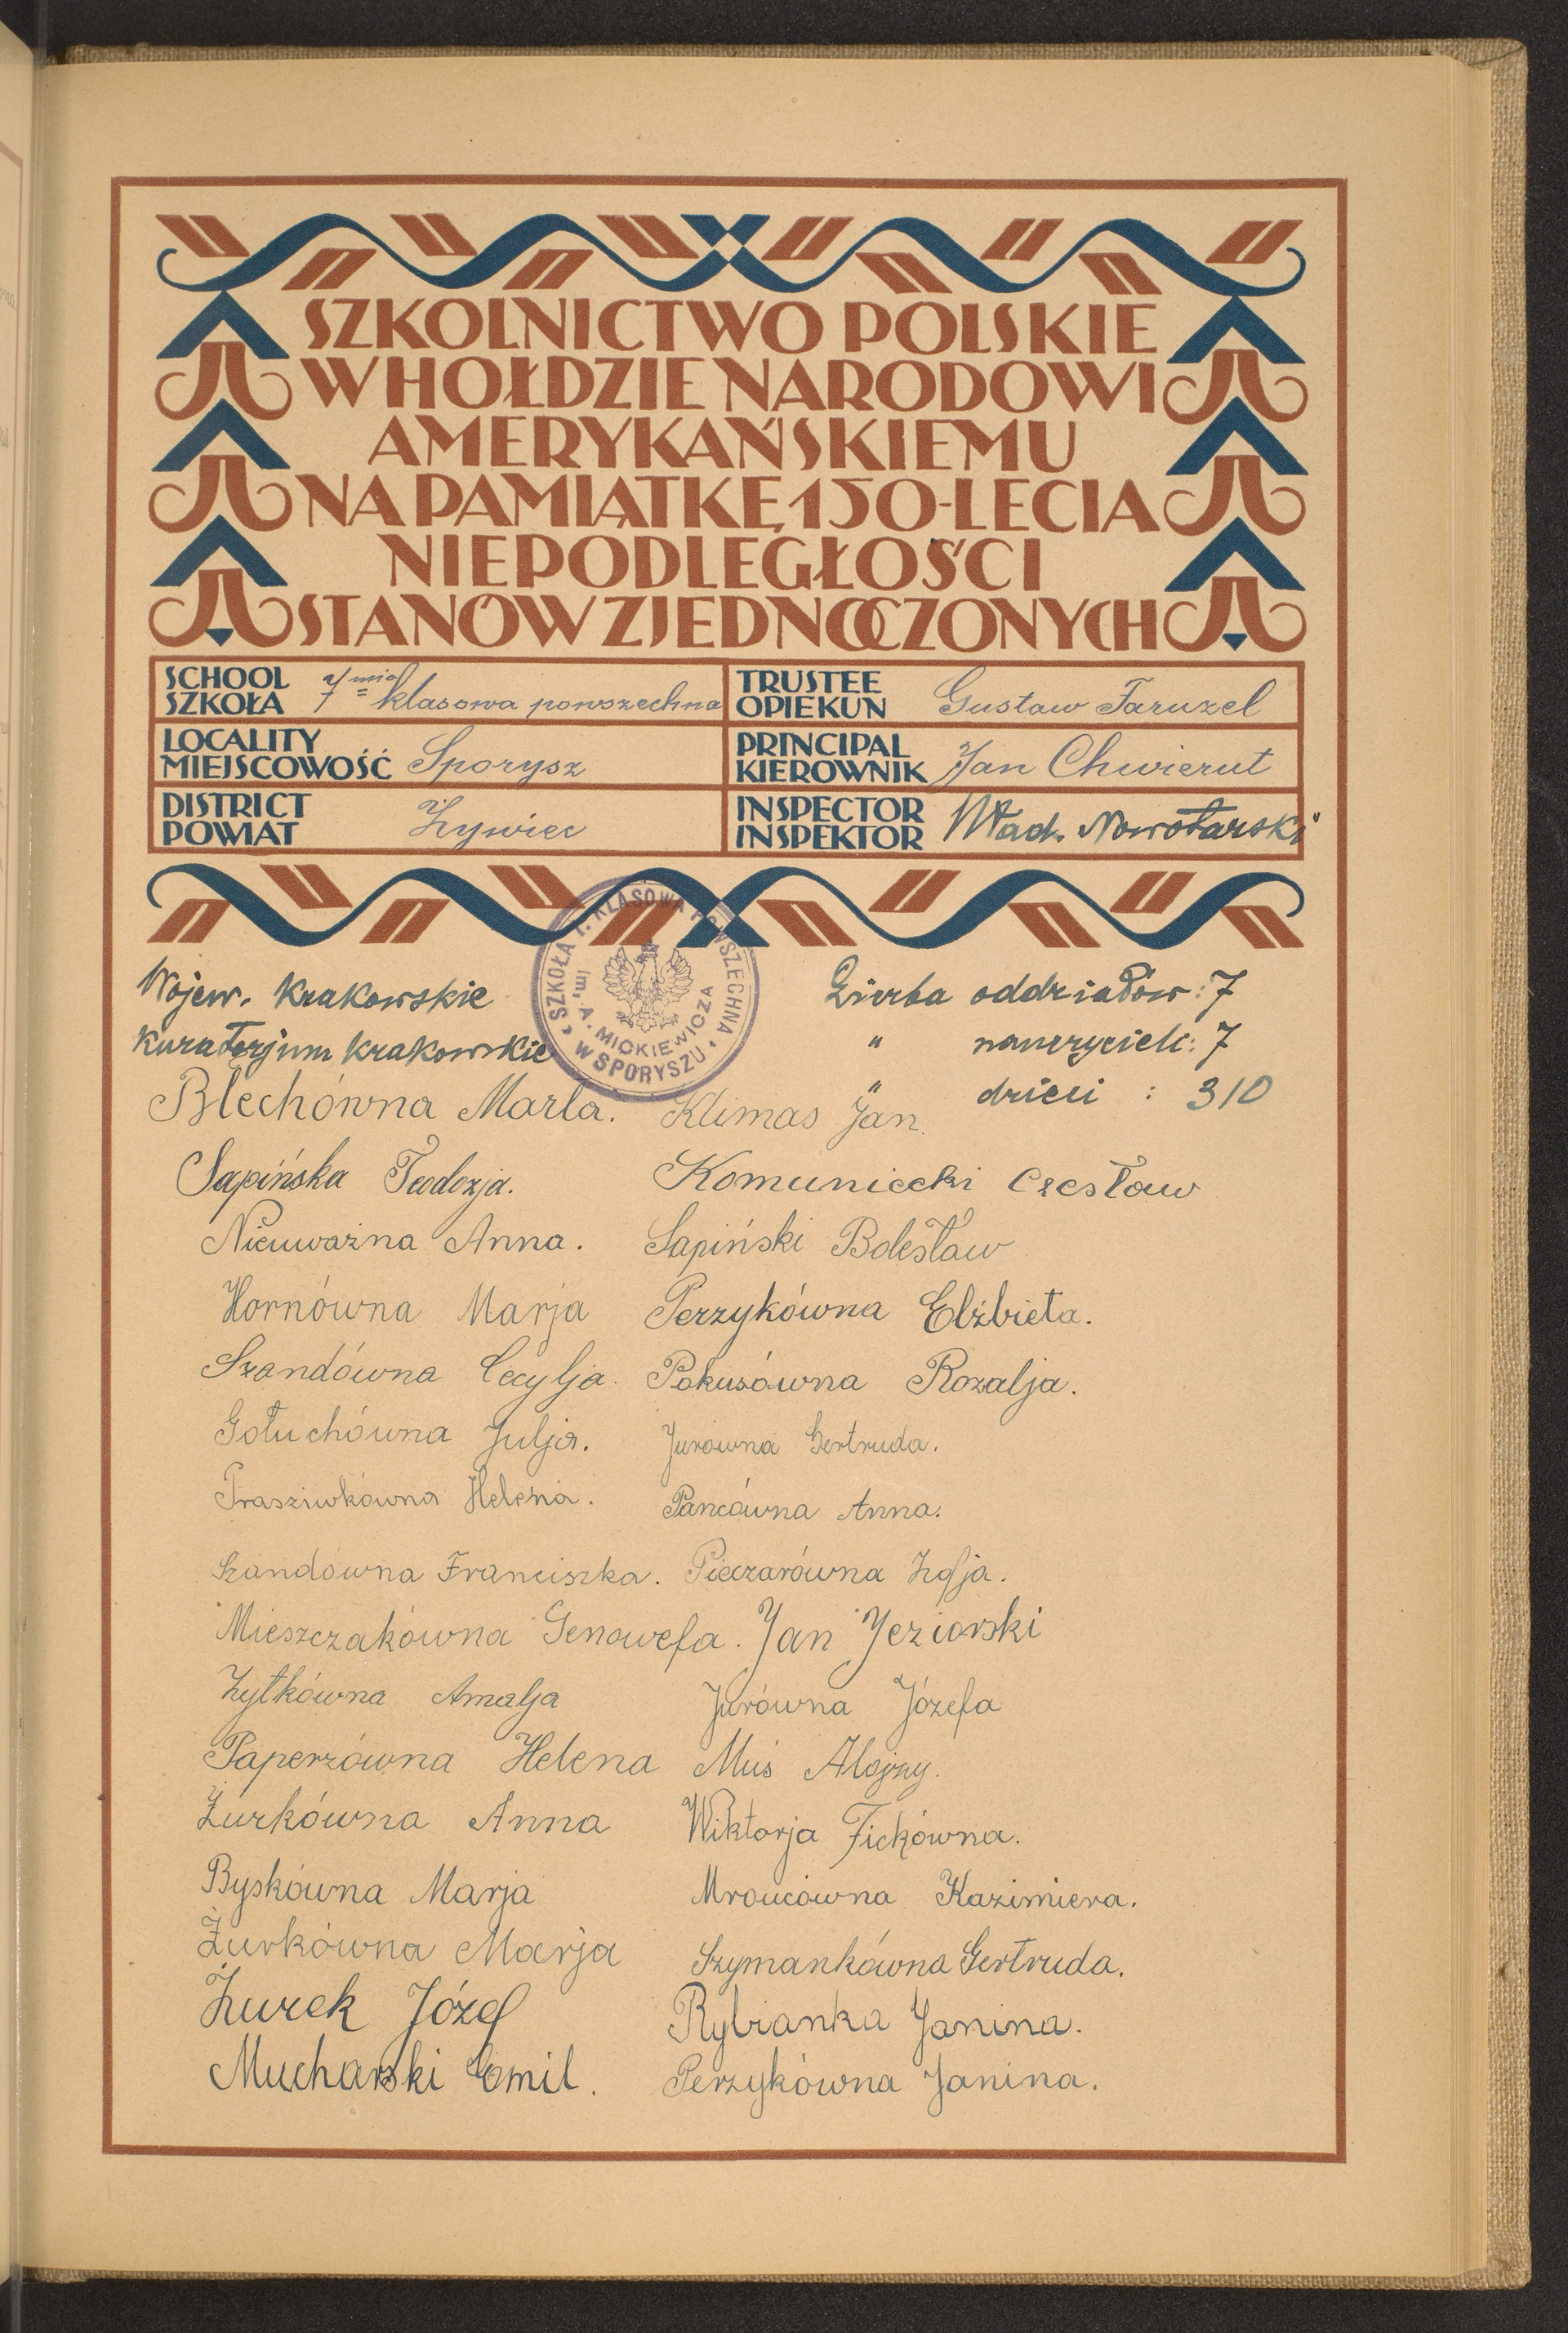 SZKOLNICTWO POLSKIE
W HOŁDZIE NARODOWI
AMERYKAŃSKIEMU
NA PAMIĄTKĘ 150-LECIA
NIEPODLEGŁOŚCI
STANÓW ZJEDNOCZONYCH
SCHOOL
SZKOŁA 7mio klasowa powszechna
TRUSTEE
OPIEKUN Gustaw Faruzel
LOCALITY
MIEJSCOWOŚĆ Sporysz
PRINCIPAL
KIEROWNIK Jan Chwierut
DISTRICT
POWIAT Żywiec
INSPECTOR
INSPEKTOR Wład. Nowotarski
SZKOŁA 7. KLASOWA POWSZECHNA
im. A. MICKIEWICZA
W SPORYSZU
Wojew. Krakowskie
Liczba oddziałów: 7
Kuratorjum Krakowskie
" nauczycieli: 7
" dzieci : 310
Blechówna Marla. Klimas Jan.
Sapińska Teodozja. Komuniecki Czesław
Nieuważna Anna. Sapiński Bolesław
Hornówna Marja Perzykówna Elżbieta.
Szandówna Cecylja. Pokusówna Rozalja.
Gołuchówna Julja. Jurówna Gertruda.
Prasziwkówna Helena. Pancówna Anna.
Szandówna Franciszka. Pieczarówna Zofja.
Mieszczakówna Genowefa. Jan Jeziorski
Żyłkówna Amalja Jurówna Józefa
Paperzówna Helena Muś Alojzy.
Żurkówna Anna Wiktorja Fickówna.
Byskówna Marja Mroucówna Kazimiera.
Żurkówna Marja Szymankówna Gertruda.
Żurek Józef Rybianka Janina.
Mucharski Emil. Perzykówna Janina.